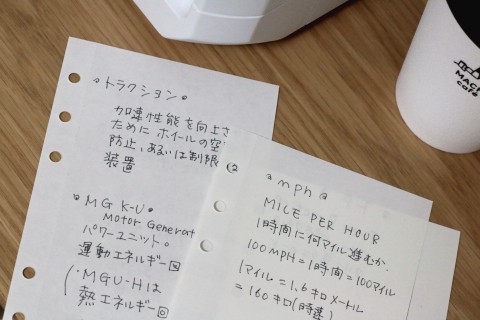 トラクション
加速性能を向上さ
ためにホイールの空
防止、あるいは制限
装置
MG K-U
Motor Generat
パワーユニット。
運動エネルギー回
MGU-Hは
熱エネルギー回
mph
MILE PER HOUR
1時間に何マイル進むか.
100MPH=1時間=100マイル
1マイル=1.6キロメートル
=160キロ(時速)
MACH
café